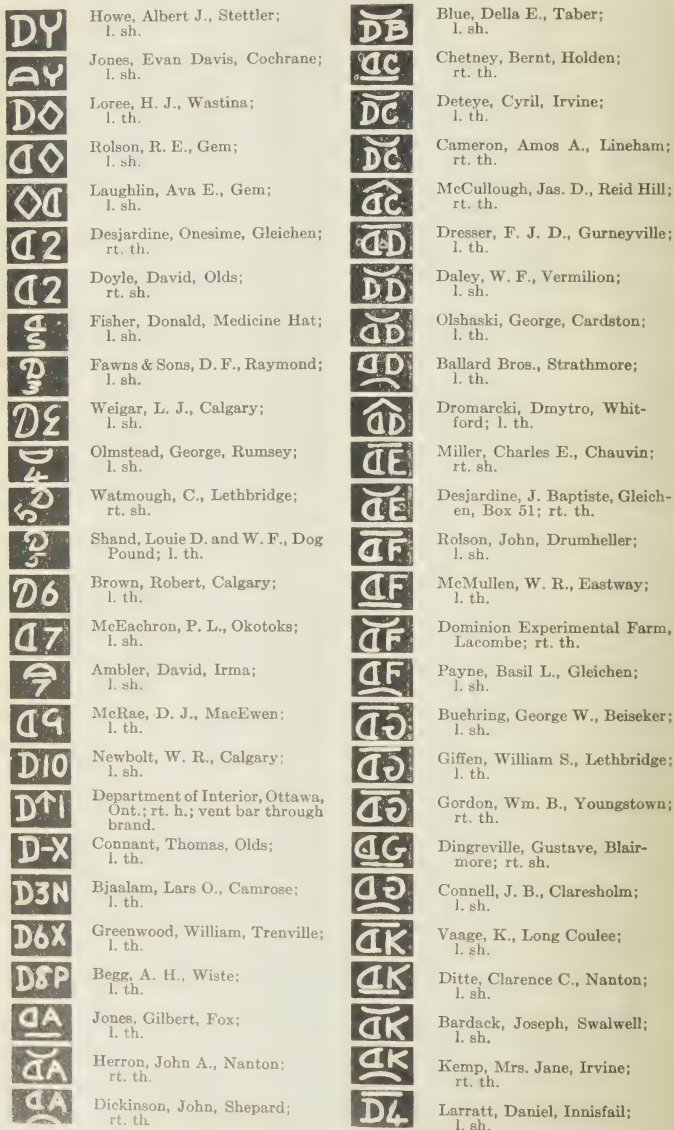 DY
Howe, Albert J., Stettler;
l. sh.
Jones, Evan Davis, Cochrane;
l. sh.
Loree, H. J., Wastina;
l. th.
Rolson, R. E., Gem;
l. sh.
Laughlin, Ava E., Gem;
l. sh.
Desjardine, Onesime, Gleichen;
rt. th.
Doyle, David, Olds;
rt. sh.
Fisher, Donald, Medicine Hat;
l. sh.
Fawns & Sons, D. F., Raymond;
l. sh.
Weigar, L. J., Calgary;
l. sh.
Olmstead, George, Rumsey;
l. sh.
Watmough, C., Lethbridge;
rt. sh.
Shand, Louie D. and W. F., Dog
Pound; l. th.
D6
Brown, Robert, Calgary;
l. th.
McEachron, P. L., Okotoks;
l. sh.
Ambler, David, Irma;
l. sh.
McRae, D. J., MacEwen;
l. th.
D10
Newbolt, W. R., Calgary;
l. sh.
D↑1
Department of Interior, Ottawa,
Ont.; rt. h.; vent bar through
brand.
D-X
Connant, Thomas, Olds;
l. th.
D3N
Bjaalam, Lars O., Camrose;
l. th.
D6X
Greenwood, William, Trenville;
l. th.
D8P
Begg, A. H., Wiste;
l. th.
Jones, Gilbert, Fox;
l. th.
Herron, John A., Nanton;
rt. th.
Dickinson, John, Shepard;
rt. th.
DB
Blue, Della E., Taber;
l. sh.
Chetney, Bernt, Holden;
rt. th.
DC
Deteye, Cyril, Irvine;
l. th.
DC
Cameron, Amos A., Lineham;
rt. th.
McCullough, Jas. D., Reid Hill;
rt. th.
Dresser, F. J. D., Gurneyville;
l. th.
DD
Daley, W. F., Vermilion;
l. sh.
Olshaski, George, Cardston;
l. th.
Ballard Bros., Strathmore;
l. th.
Dromarcki, Dmytro, Whit-
ford; l. th.
Miller, Charles E., Chauvin;
rt. sh.
Desjardine, J. Baptiste, Gleich-
en, Box 51; rt. th.
Rolson, John, Drumheller;
l. sh.
McMullen, W. R., Eastway;
l. th.
Dominion Experimental Farm,
Lacombe; rt. th.
Payne, Basil L., Gleichen;
l. sh.
Buehring, George W., Beiseker;
l. sh.
Giffen, William S., Lethbridge;
l. th.
Gordon, Wm. B., Youngstown;
rt. th.
Dingreville, Gustave, Blair-
more; rt. sh.
Connell, J. B., Claresholm;
l. sh.
Vaage, K., Long Coulee;
l. sh.
Ditte, Clarence C., Nanton;
l. sh.
Bardack, Joseph, Swalwell;
l. sh.
Kemp, Mrs. Jane, Irvine;
rt. th.
D4
Larratt, Daniel, Innisfail;
l. sh.